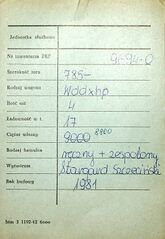 Jednostka służbowa
Nr inwentarza PKP 91-94-0
Szerokość toru 785-
Rodzaj wagonu Wddxhp
Ilość osi 4
Ładowność w t. 17
Ciężar własny 9000 8900
Rodzaj hamulca ręczny + zespolony
Wytwórnia Stargard Szczeciński
Rok budowy 1981